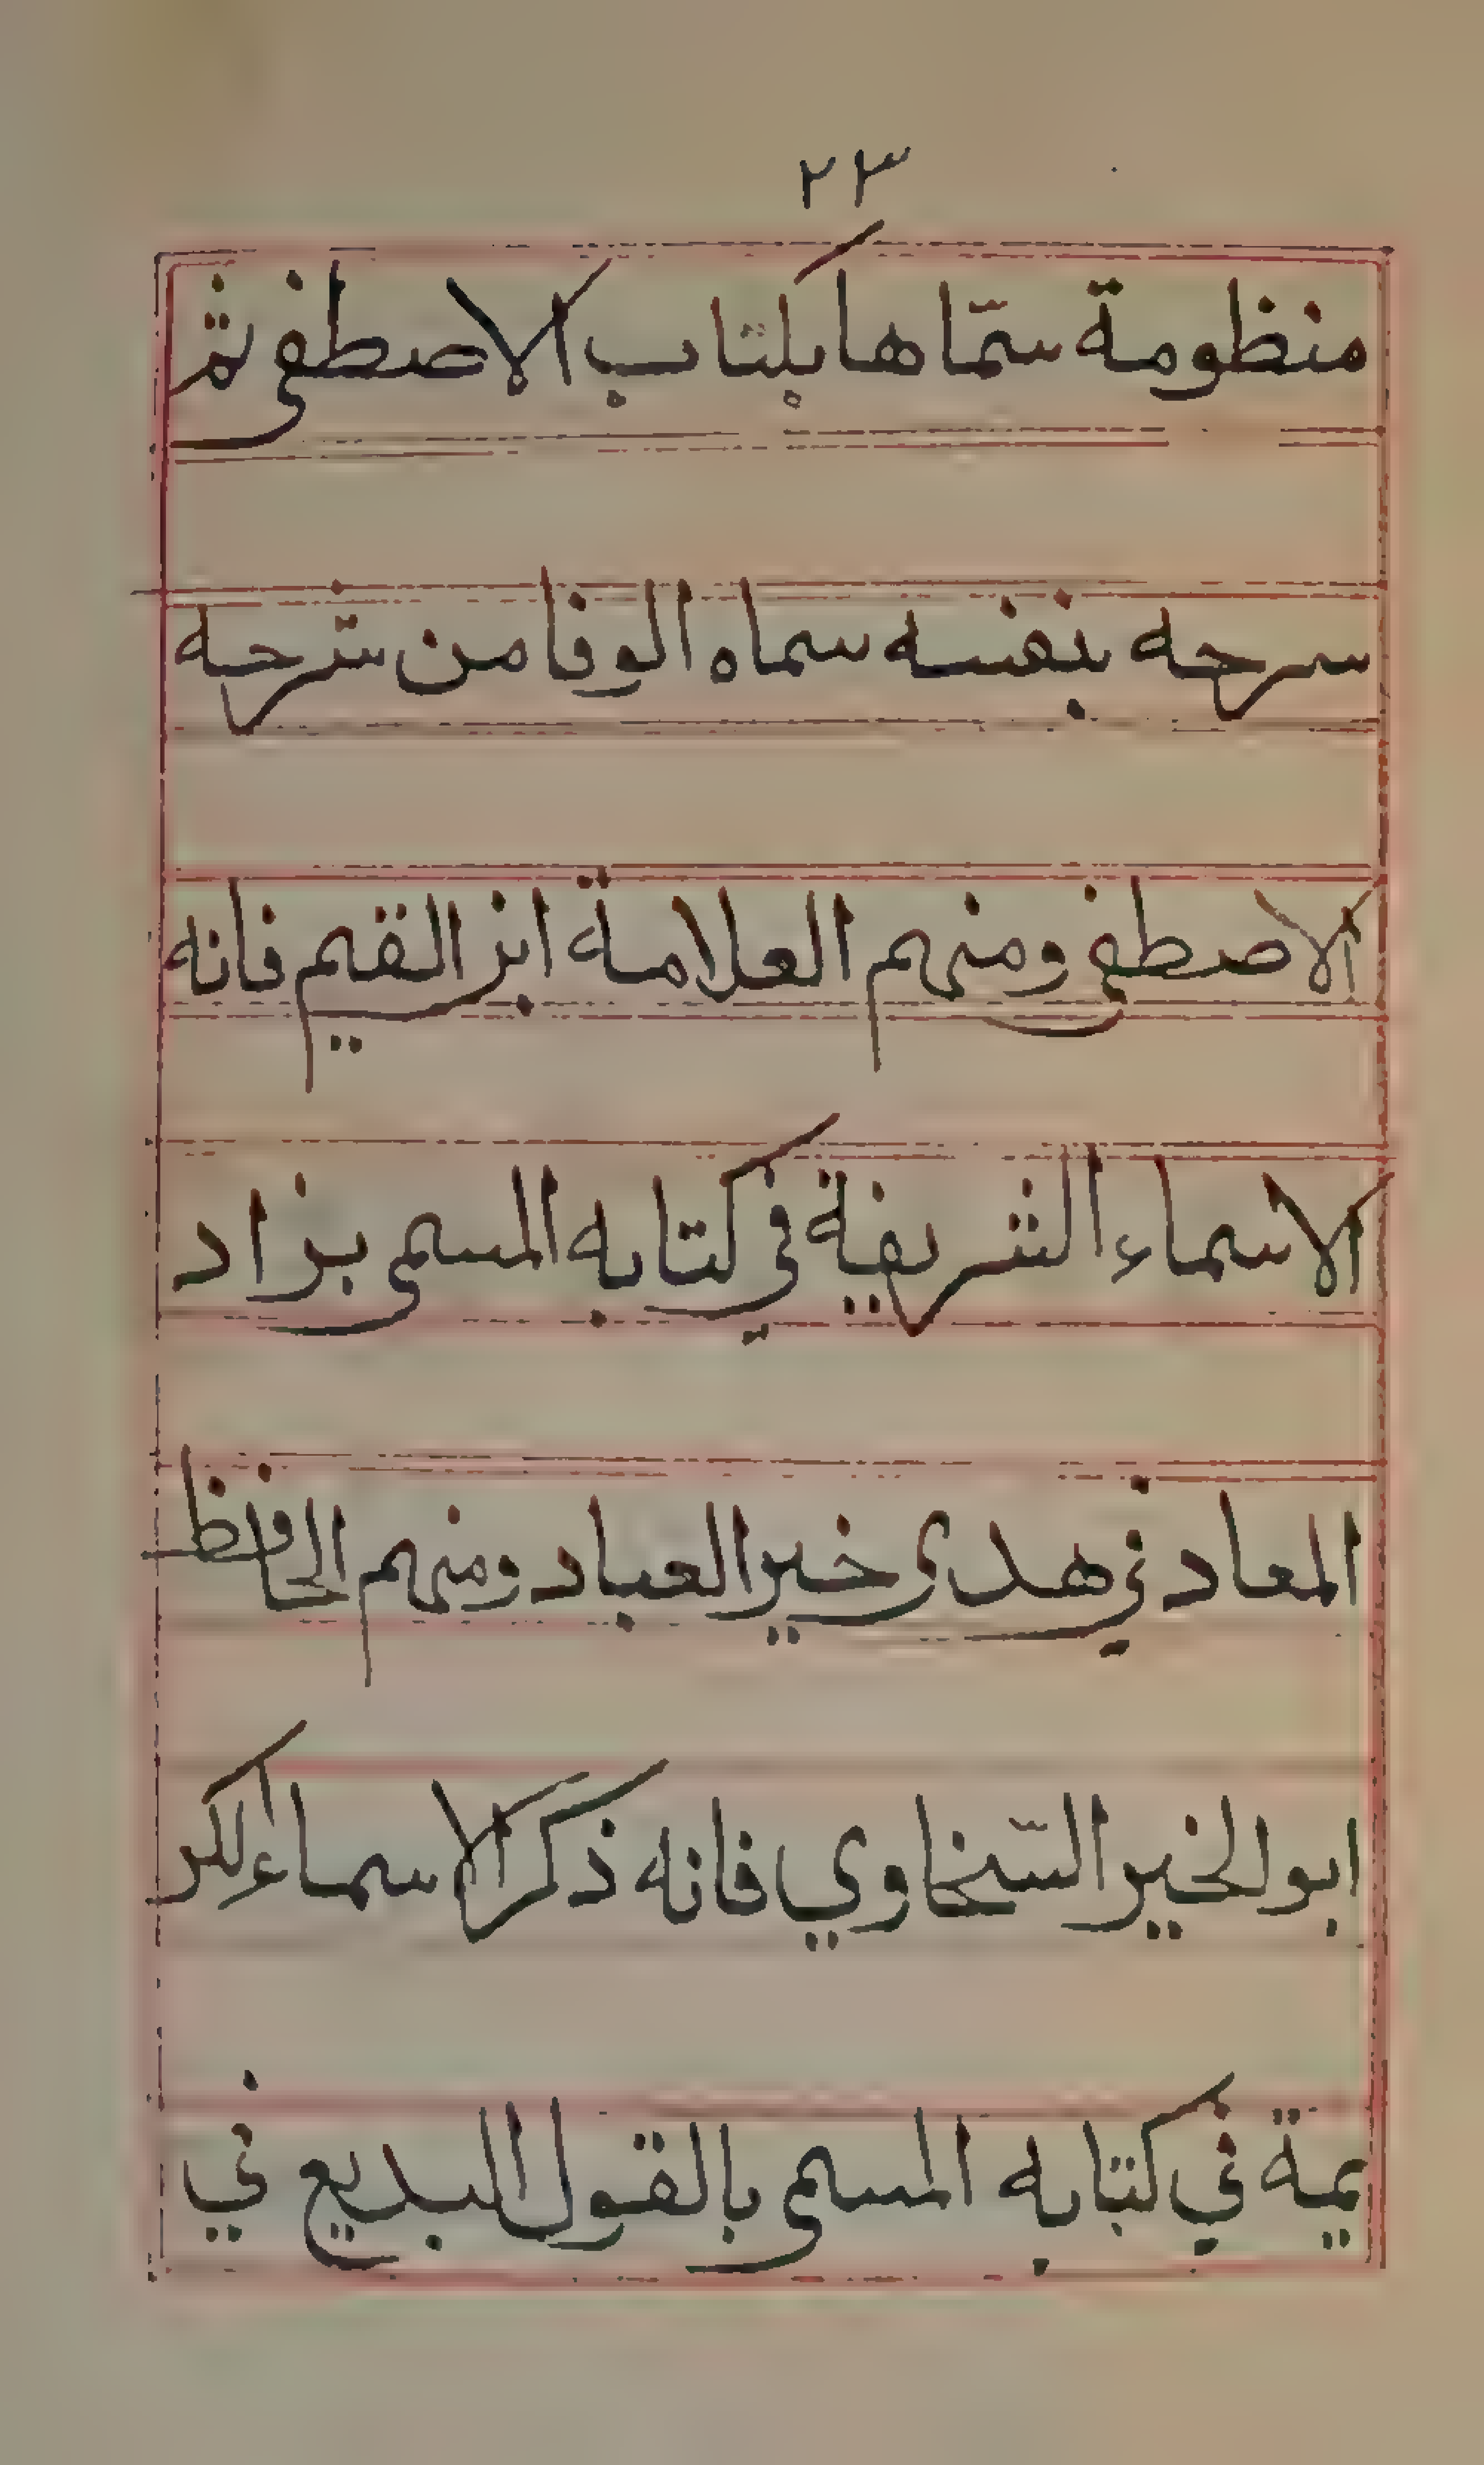 ٢٣
منظومة سمّاها بكتاب الاصطفى ثم
سرحه بنفسه سماه الوفا من شرحه
الاصطفى ومنهم العلامة ابن القيم فانه
الاسماء الشريفة في كتابه المسمى بزاد
المعاد في هدى خير العباد ومنهم الحافظ
ابو الخير السّخاوي فانه ذكر الاسماء الكر
يمة في كتابه المسمى بالقول البديع في